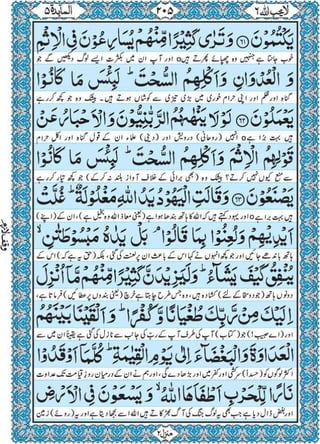 المآىدة ٥ ٢٠٥ لا يحب الله ٦
يَكْتُمُوْنَ ﴿۶۱﴾ وَ تَرٰى كَثِیْرًا مِّنْهُمْ یُسَارِعُوْنَ فِی الْاِثْمِ
خوب جانتا ہے جنہیں وہ چھپائے پھرتے ہیں اور آپ ان میں بکثرت ایسے لوگ دیکھیں گے جو
وَ الْعُدْوَانِ وَ اَكْلِهِمُ السُّحْتَ ؕ لَبِئْسَ مَا كَانُوْا
گناہ اور ظلم اور اپنی حرام خوری میں بڑی تیزی سے کوشاں ہوتے ہیں۔ بیشک وہ جو کچھ کررہے
یَعْمَلُوْنَ ﴿۶۲﴾ لَوْ لَا یَنْهٰىهُمُ الرَّبّٰنِیُّوْنَ وَ الْاَحْبَارُ عَنْ
ہیں بہت برا ہے انہیں (روحانی) درویش اور (دینی) علماء ان کے قول گناہ اور اکل حرام
قَوْلِهِمُ الْاِثْمَ وَ اَكْلِهِمُ السُّحْتَ ؕ لَبِئْسَ مَا كَانُوْا
سے منع کیوں نہیں کرتے؟ بیشک وہ (بھی برائی کے خلاف آواز بلند نہ کر کے) جو کچھ تیار کررہے
یَصْنَعُوْنَ ﴿۶۳﴾ وَ قَالَتِ الْیَهُوْدُ یَدُ اللّٰهِ مَغْلُوْلَةٌ ؕ غُلَّتْ
ہیں بہت برا ہے اور یہود کہتے ہیں کہ اللہ کا ہاتھ بندھا ہوا ہے (یعنی معاذ اللہ وہ بخیل ہے)، ان کے (اپنے)
اَیْدِیْهِمْ وَ لُعِنُوْا بِمَا قَالُوْا ۘ بَلْ یَدٰهُ مَبْسُوْطَتٰنِ ۙ
ہاتھ باندھے جائیں اور جو کچھ انہوں نے کہا اس کے باعث ان پر لعنت کی گئی، بلکہ (حق یہ ہے کہ) اس کے
یُنْفِقُ كَیْفَ یَشَآءُ ؕ وَ لَیَزِیْدَنَّ كَثِیْرًا مِّنْهُمْ مَّاۤ اُنْزِلَ
دونوں ہاتھ (جود و سخا کے لئے) کشادہ ہیں، وہ جس طرح چاہتا ہے خرچ (یعنی بندوں پر عطائیں) فرماتا ہے،
اِلَیْكَ مِنْ رَّبِّكَ طُغْیَانًا وَّ كُفْرًا ؕ وَ اَلْقَیْنَا بَیْنَهُمُ
اور (اے حبیب!) جو (کتاب) آپ کی طرف آپ کے رب کی جانب سے نازل کی گئی ہے یقیناً ان میں سے
الْعَدَاوَةَ وَ الْبَغْضَآءَ اِلٰى یَوْمِ الْقِیٰمَةِ ؕ كُلَّمَاۤ اَوْقَدُوْا
اکثر لوگوں کو (حسداً) سرکشی اور کفر میں اور بڑھا دے گی، اور ہم نے ان کے درمیان روز قیامت تک عداوت
نَارًا لِّلْحَرْبِ اَطْفَاَهَا اللّٰهُ ۙ وَ یَسْعَوْنَ فِی الْاَرْضِ
اور بغض ڈال دیا ہے، جب بھی یہ لوگ جنگ کی آگ بھڑکاتے ہیں اللہ اسے بجھا دیتا ہے اور یہ (روئے) زمین
منزل ٢